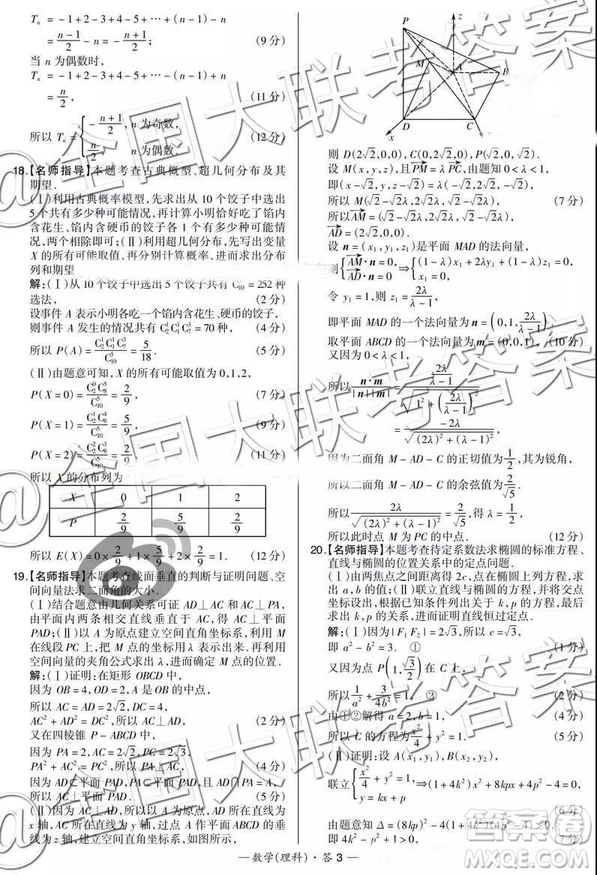 T_n = -1+2-3+4-5+…-n
= (n-1)/2 - n = -(n+1)/2; (9分)
当 n 为偶数时,
T_n = -1+2-3+4-5+…+n
= n/2, (11分)
所以 T_n = { -(n+1)/2, n 为奇数, n/2, n 为偶数. (12分)
18.【名师指导】本题考查古典概型,超几何分布及其
期望.
(Ⅰ)利用古典概率模型,先求出从 10 个饺子中选出
5 个共有多少种可能情况,再计算小明恰好吃了馅内
含花生、馅内含硬币的饺子各 1 个有多少种可能情
况,两个相除即可;(Ⅱ)利用超几何分布,先写出变量
X 的所有可能取值,再分别计算概率,进而求出分布
列和期望
解:(Ⅰ)从 10 个饺子中选出 5 个饺子共有 C_10^5 = 252 种
选法, (2分)
设事件 A 表示小明各吃一个馅内含花生、硬币的饺子,
则事件 A 发生的情况共有 C_2^1C_1^1C_7^3 = 70 种, (4分)
所以 P(A) = = 5/18. (5分)
(Ⅱ)由题意可知,X 的所有可能取值为 0,1,2,
P(X=0) = = 2/9, (7分)
P(X=1) = = 5/9, (8分)
P(X=2) = = 2/9. (10分)
所以 X 的分布列为
X 0 1 2
P 2/9 5/9 2/9
所以 E(X) = 0×2/9+1×5/9+2×2/9=1. (12分)
19.【名师指导】本题考查线面垂直的判断与证明问题、空
间向量法求二面角的大小.
(Ⅰ)结合题意由几何关系可证 AD⊥AC 和 PA⊥AC,
由平面内两条相交直线垂直于 AC,得 AC⊥平面
PAD;(Ⅱ)以 A 为原点建立空间直角坐标系,利用 M
在线段 PC 上,把 M 的坐标用 λ 表示出来,再利用
空间向量的夹角公式求解,进而确定 M 点的位置.
解:(Ⅰ)证明:在矩形 OBCD 中,
因为 OB=4,OD=2,A 为 OB 的中点,
所以 AC=AD=2√2,DC=4,
AC²+AD²=DC²,所以 AC⊥AD, (2分)
又在四棱锥 P-ABCD 中,
因为 PA=2,AC=2√2,PC=2√3,
PA²+AC²=PC²,所以 AC⊥PA, (4分)
因为 AD⊂平面 PAD,PA⊂平面 PAD,
所以 AC⊥平面 PAD. (5分)
(Ⅱ)以 A 为坐标原点,AD 所在直线为
x 轴,AC 所在直线为 y 轴,过点 A 作平面 ABCD
的垂线为 z 轴,建立空间直角坐标系,
z
P
M
A
B
D
C
则 D(2√2,0,0),C(0,2√2,0),P(√2,0,√2).
设 M(x,y,z),且 PM=λPC,由题知 0<λ<1,
所以 M(√2-√2λ,2√2λ,√2-√2λ). (7分)
AD=(2√2,0,0).
设 n=(x₁,y₁,z₁)是平面 MAD 的法向量,
则 { AM·n=0, AD·n=0, ⇒ { (1-λ)x₁+2λy₁+(1-λ)z₁=0, x₁=0.
令 y₁=1,则 z₁=2λ/(λ-1),
即平面 MAD 的一个法向量为 n=(0,1,2λ/(λ-1)).
取平面 ABCD 的一个法向量为 m=(0,0,1), (10分)
又因为 0<λ<1,
因为二面角 M-AD-C 的正切值为 1/2,其为锐角,
所以二面角 M-AD-C 的余弦值为 2/√5.
所以此时点 M 为 PC 的中点. (12分)
20.【名师指导】本题考查待定系数法求椭圆的标准方程、
直线与椭圆的关系中的定点问题.
(Ⅰ)由两焦点之间距离得 2c,点在椭圆上列方程,求
出 a,b 的值;(Ⅱ)联立直线与椭圆的方程,并将交点
坐标设出,根据已知条件列出关于 k,p 的方程,找出
k,p 的关系,进而证明直线恒过定点.
解:(Ⅰ)因为|F₁F₂|=2√3,所以 c=√3,
即 a²-b²=3. ① (1分)
又因为点 P(1,√3/2)在 C 上,
所以 1/a²+3/(4b²)=1, ② (2分)
由①②解得 a=2,b=1, (4分)
所以 C 的方程为 x²/4+y²=1. (5分)
(Ⅱ)证明:设 A(x₁,y₁),B(x₂,y₂),
联立 ⇒(1+4k²)x²+8kpx+4p²-4=0,
(6分)
由题意知 Δ=(8kp)²-4(1+4k²)(4p²-4)>0,
—数学(理科)·答 3—
@全国大联考答案
答案圈
MXQE.COM